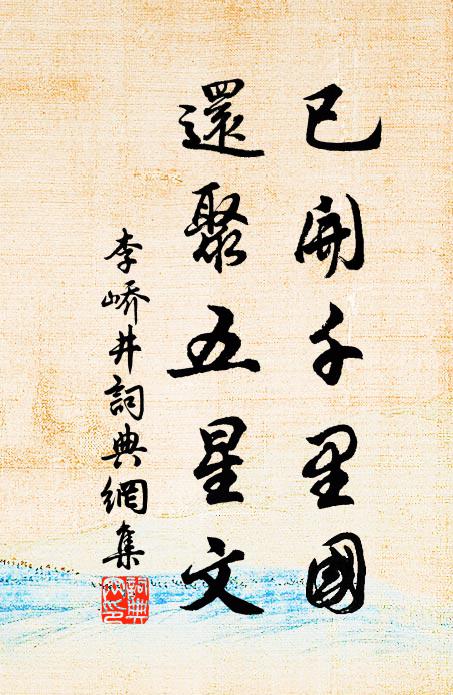 已開千里國
還聚五星文
李嶠井詞典網集